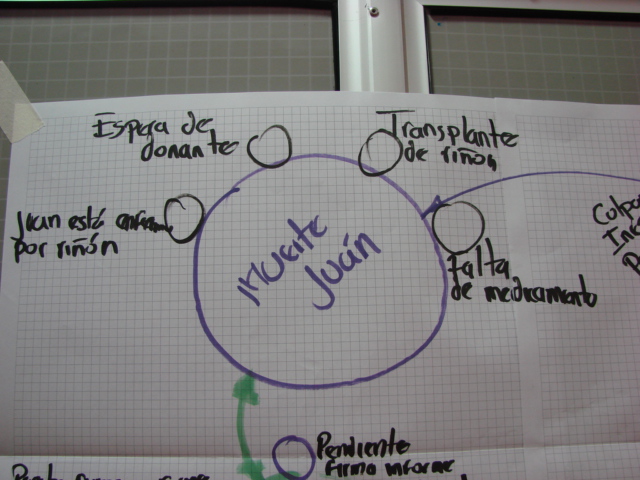 Espera de
donante
Transplante
de riñón
Juan está
por riñón
Muerte
Juán
falta
de medicamento
Pendiente
firma informe